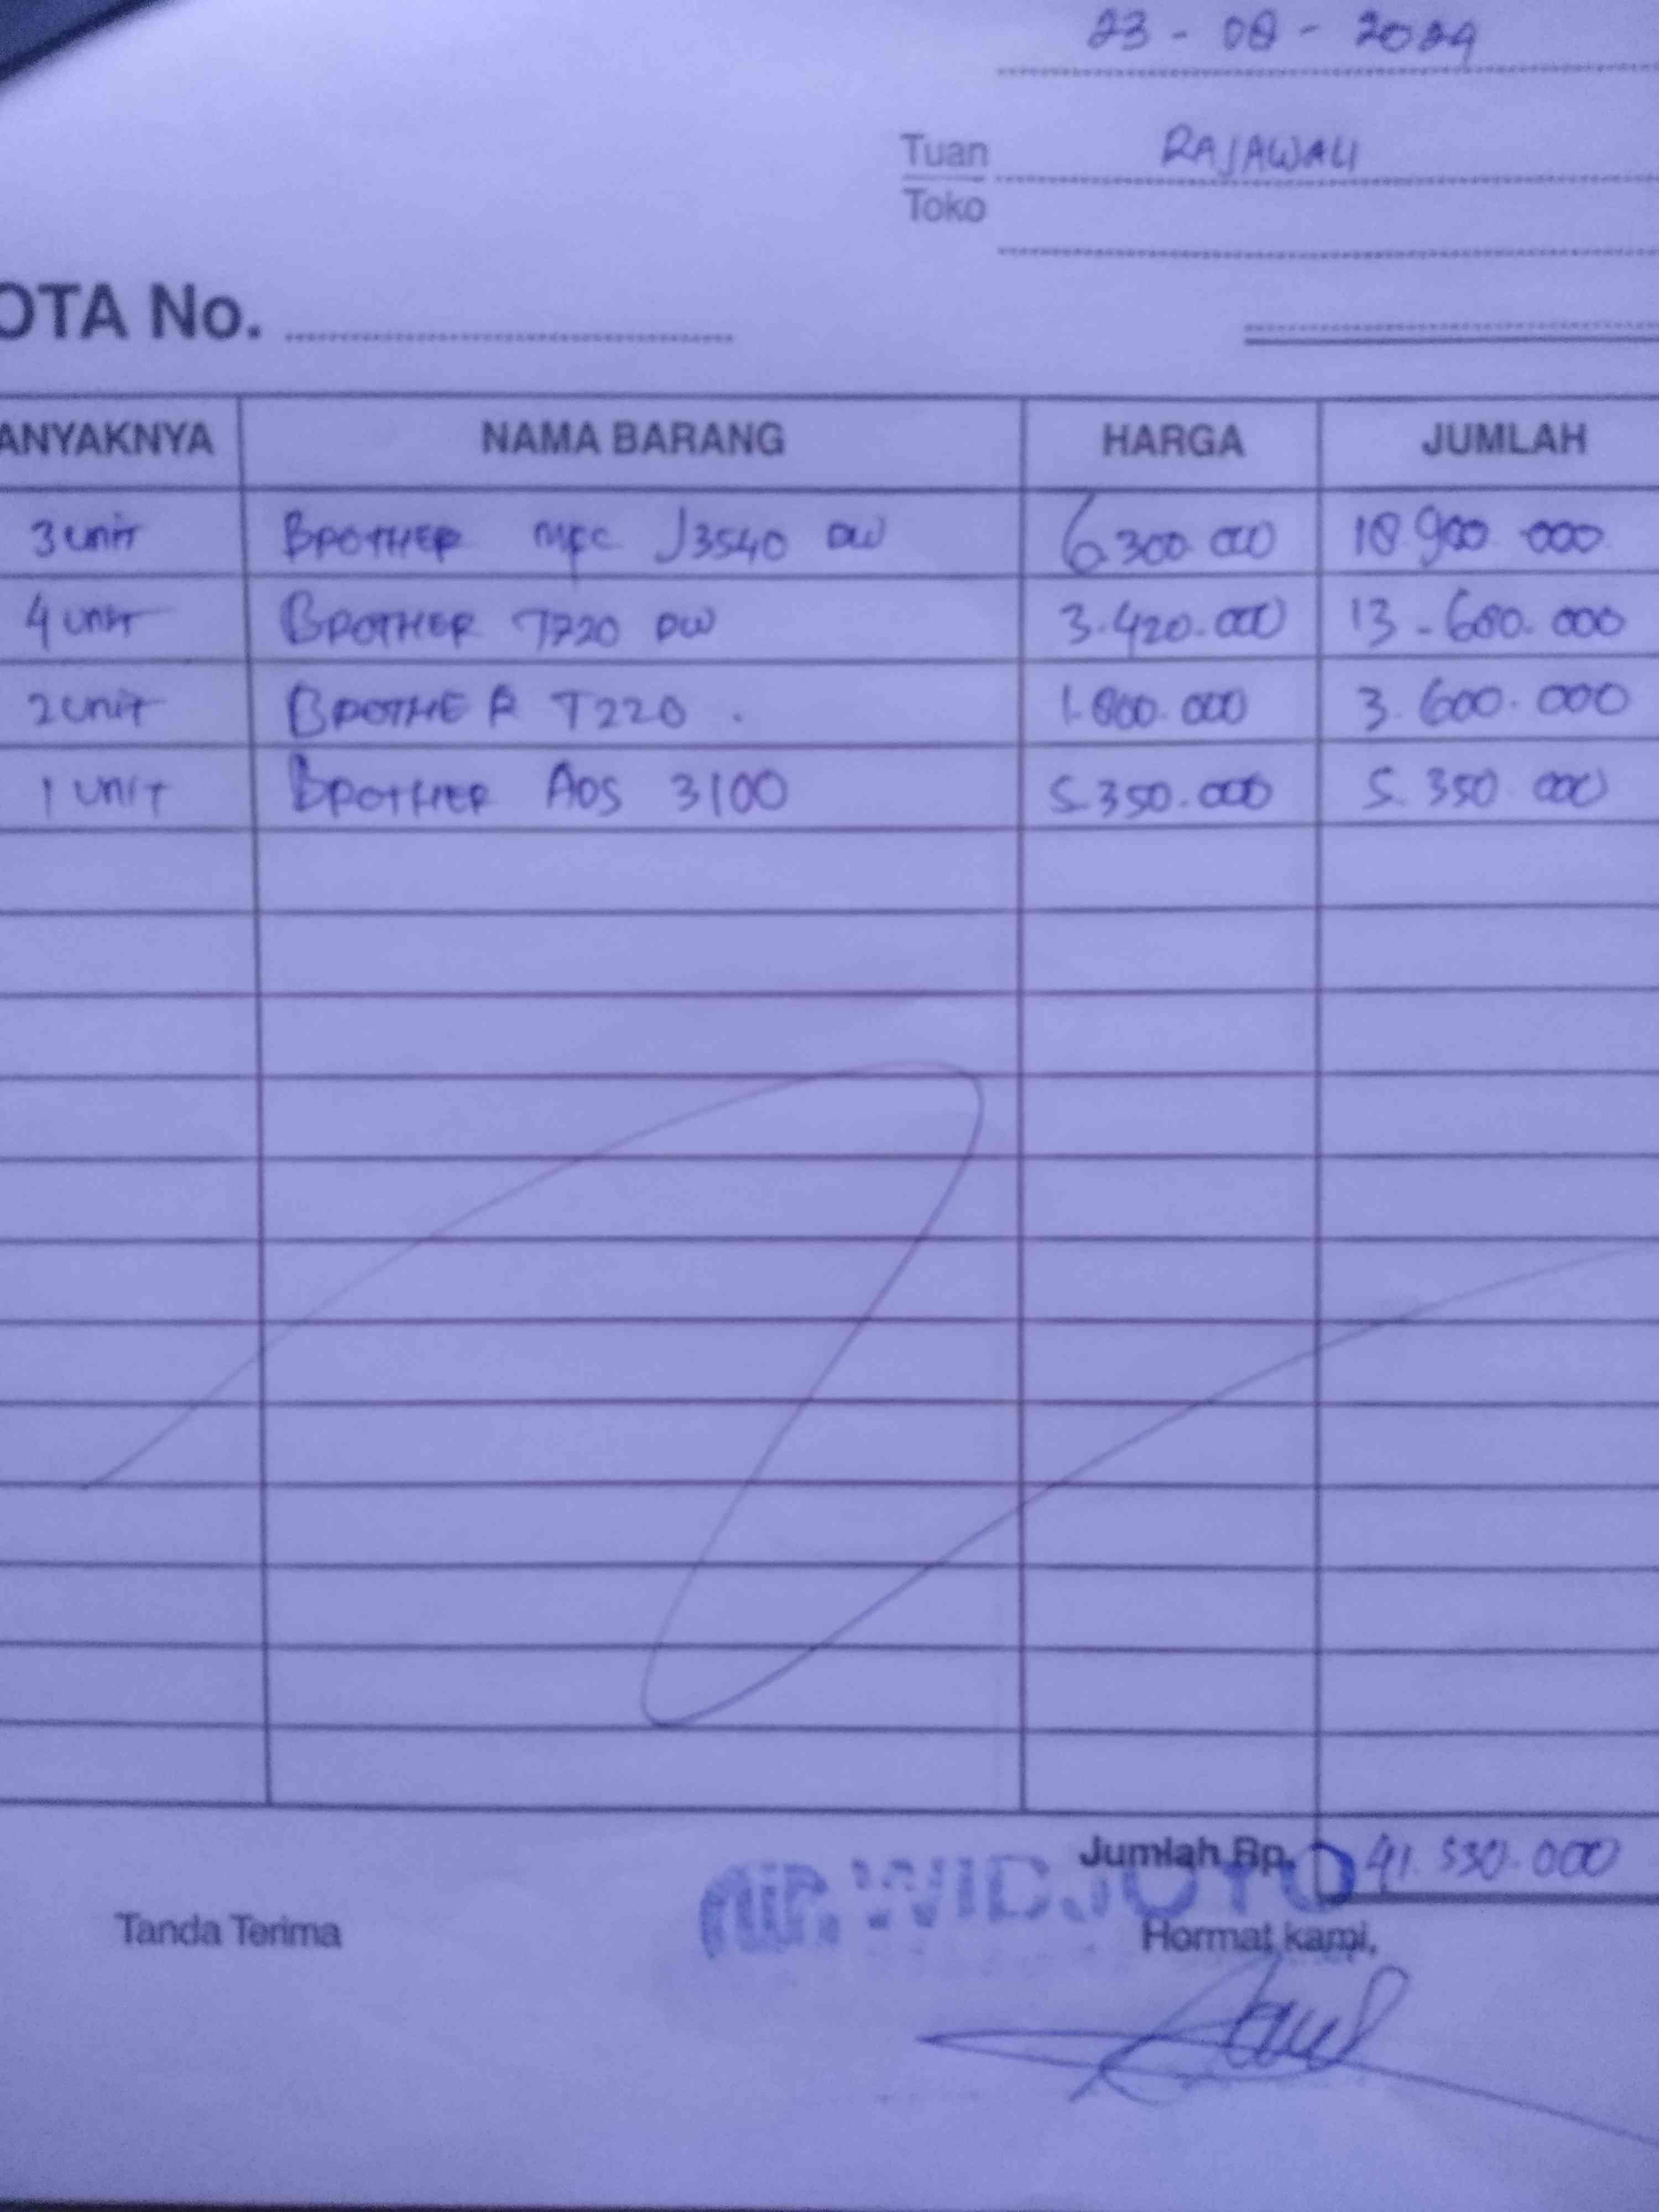 23 - 08 - 2024
Tuan RAJAWALI
Toko
OTA No.
ANYAKNYA NAMA BARANG HARGA JUMLAH
3 unit BROTHER MFC J3540 DW 6.300.000 18.900.000
4 unit BROTHER T720 DW 3.420.000 13.680.000
2 unit BROTHER T220 . 1.800.000 3.600.000
1 unit BROTHER ADS 3100 5.350.000 5.350.000
Jumlah Rp. 41.530.000
WIDJOYO
Tanda Terima Hormat kami,